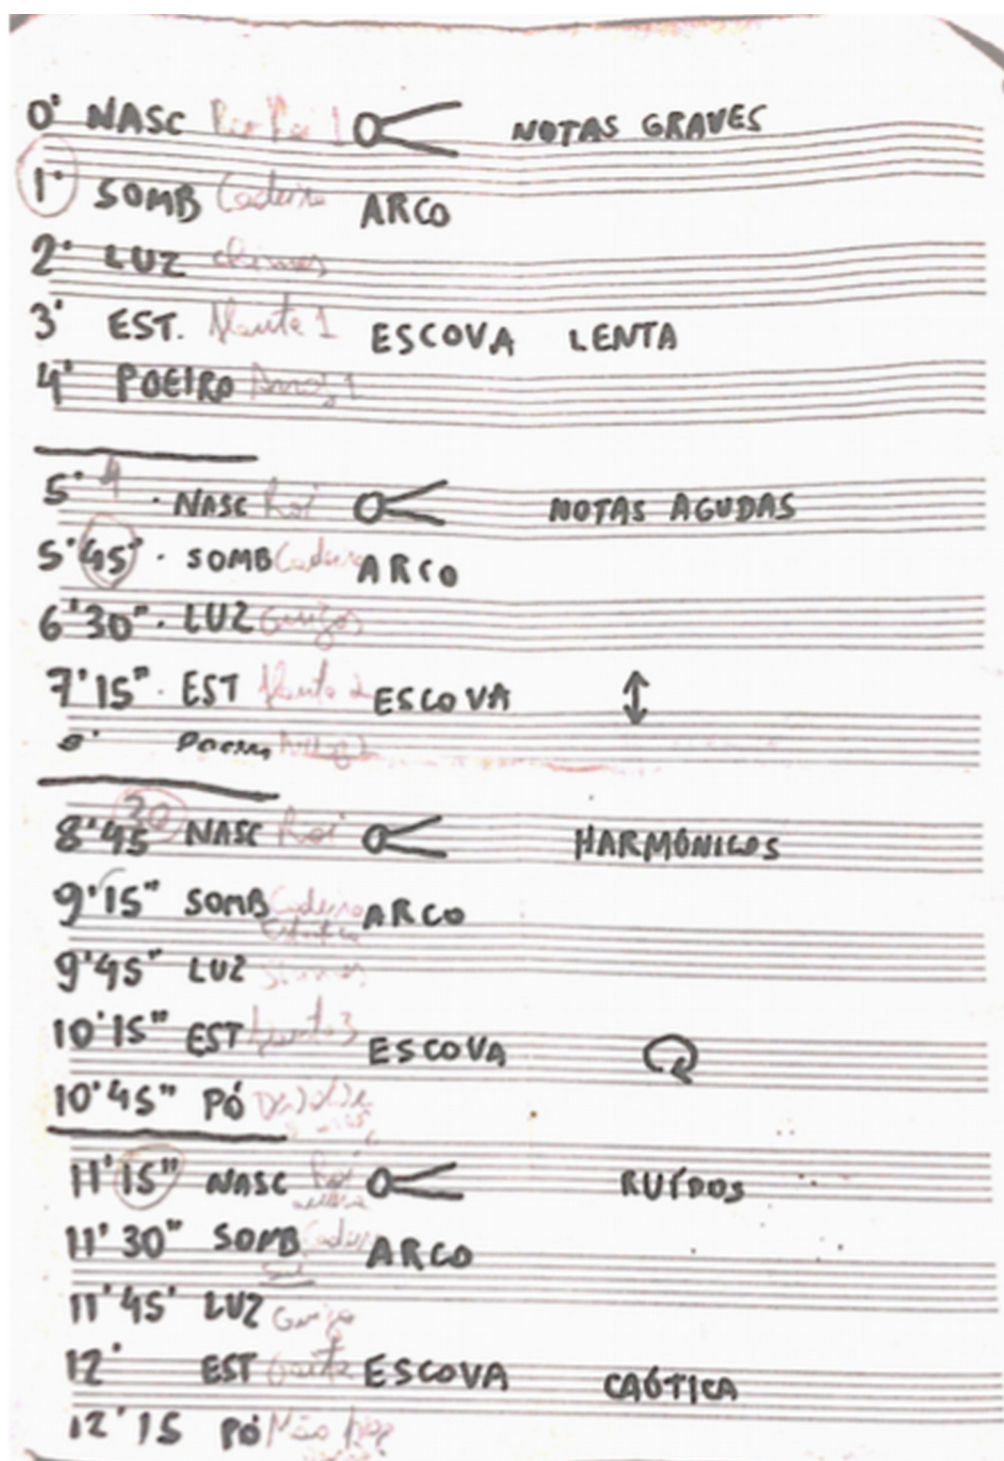 0' NASC NOTAS GRAVES
1' SOMB Cadeira ARCO
2' LUZ chimes
3' EST. Manta 1 ESCOVA LENTA
4' POEIRA Arroz 1
5' NASC Roi NOTAS AGUDAS
5'45" SOMB Cadeira ARCO
6'30" LUZ Guizos
7'15" EST Manta 2 ESCOVA ↕
8' POEIRA
30
8'45 NASC Roi HARMÓNICOS
9'15" SOMB Cadeira ARCO
9'45" LUZ
10'15" EST Manta 3 ESCOVA
10'45" PÓ
11'15" NASC Roi RUÍDOS
11'30" SOMB Cadeira ARCO
11'45' LUZ Guizo
12' EST ESCOVA CAÓTICA
12'15 PÓ Mão